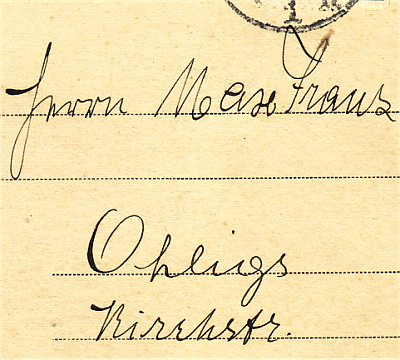 Herrn Max Franz
Ohligs
Kirchstr.